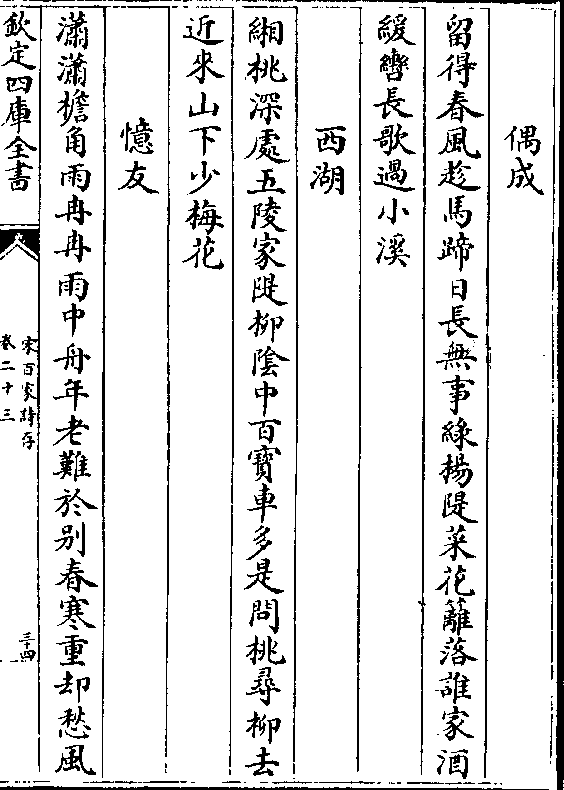 偶成
留得春風趁馬蹄日長無事緑楊隄菜花籬落誰家酒
緩轡長歌過小溪
西湖
緗桃深處五陵家隄柳陰中百寶車多是問桃尋柳去
近來山下少梅花
憶友
瀟瀟檐角雨冉冉雨中舟年老難於别春寒重却愁風
欽定四庫全書
宋百家詩存
卷二十三
三十四